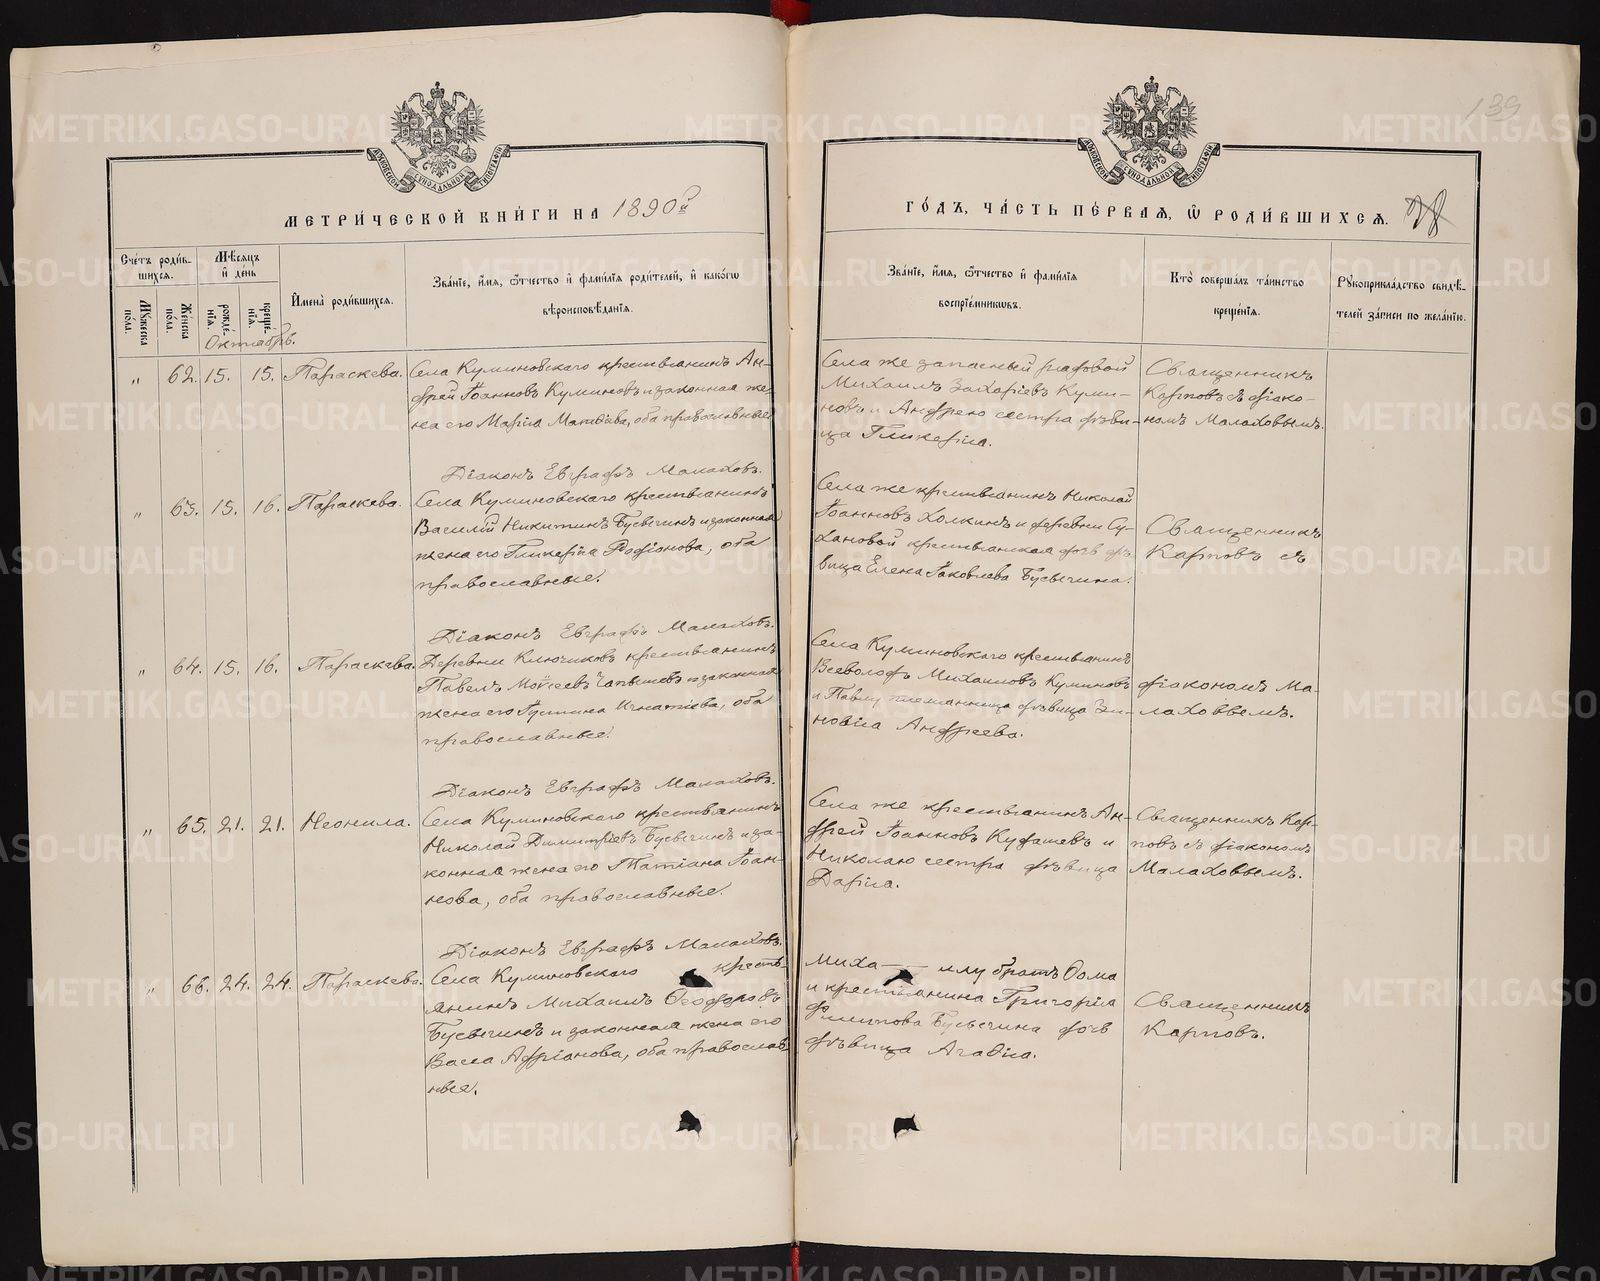 139
МЕТРИ́ЧЕСКОЙ КНИ́ГИ НА 1890й
ГО́ДЪ, ЧА́СТЬ ПЕ́РВАЯ, Ѿ РОДИ́ВШИХСЯ.
Сче́тъ роди́в-
шихся.
Мꙋжеска
по́ла.
Же́нска
по́ла.
Мѣ́сяцъ
и̂ де́нь
рожде́-
нїѧ.
креще́-
нїѧ.
И̂мена̀ роди́вшихся.
Зва́нїе, и̂́мя, ѿ́тчество и̂ фами́лїя роди́телей, и̂ како́гѡ
вѣроисповѣ́данїя.
Зва́нїе, и̂́мя, ѿ́тчество и̂ фами́лїя
воспрїе́мникѡвъ.
Кто̀ соверша́лъ та́инство
креще́нїя.
Рꙋкоприкла́дство свидѣ́-
телей за́писи по жела́нїю.
Октябрь.
„ 62. 15. 15. Параскева.
Села Куминовскаго крестьянинъ Ан-
дрей Іоанновъ Куминовъ и законная же-
на его Марія Матвѣева, оба православные
Села же запасный рядовой
Михаилъ Захаріевъ Куми-
новъ и Андрею сестра дѣви-
ца Гликерія.
Священникъ
Карповъ съ діако-
номъ Малаховымъ.
Діаконъ Евграфъ Малаховъ.
„ 63. 15. 16. Параскева.
Села Куминовскаго крестьянинъ
Василій Никитинъ Бусыгинъ и законная
жена его Гликерія Родіонова, оба
православные.
Села же крестьянинъ Николай
Іоанновъ Холкинъ и деревни Су-
хановой крестьянская дочь дѣ-
вица Елена Іаковлева Бусыгина.
Священникъ
Карповъ съ
Діаконъ Евграфъ Малаховъ.
„ 64. 15. 16. Параскева.
Деревни Ключиковъ крестьянинъ
Павелъ Моѵсеевъ и законная
жена его Іустина Игнатіева, оба
православные.
Села Куминовскаго крестьянинъ
Всеволодъ Михаиловъ Куминовъ
и Павлу племянница дѣвица Зи-
новія Андреева.
діакономъ Ма-
лаховымъ.
Діаконъ Евграфъ Малаховъ.
„ 65. 21. 21. Неонила.
Села Куминовскаго крестьянинъ
Николай Димитріевъ Бусыгинъ и за-
конная жена его Татіана Іоан-
нова, оба православные.
Села же крестьянинъ Ан-
дрей Іоанновъ Кудашевъ и
Николаю сестра дѣвица
Дарія.
Священникъ Кар-
повъ съ діакономъ
Малаховымъ.
Діаконъ Евграфъ Малаховъ.
„ 66. 24. 24. Параскева.
Села Куминовскаго кресть-
янинъ Михаилъ Ѳеодоровъ
Бусыгинъ и законная жена его
Васса Адріанова, оба православ-
ные.
Миха— илу братъ Ѳома
и крестьянина Григорія
Филипова Бусыгина дочь
дѣвица Агафія.
Священникъ
Карповъ.